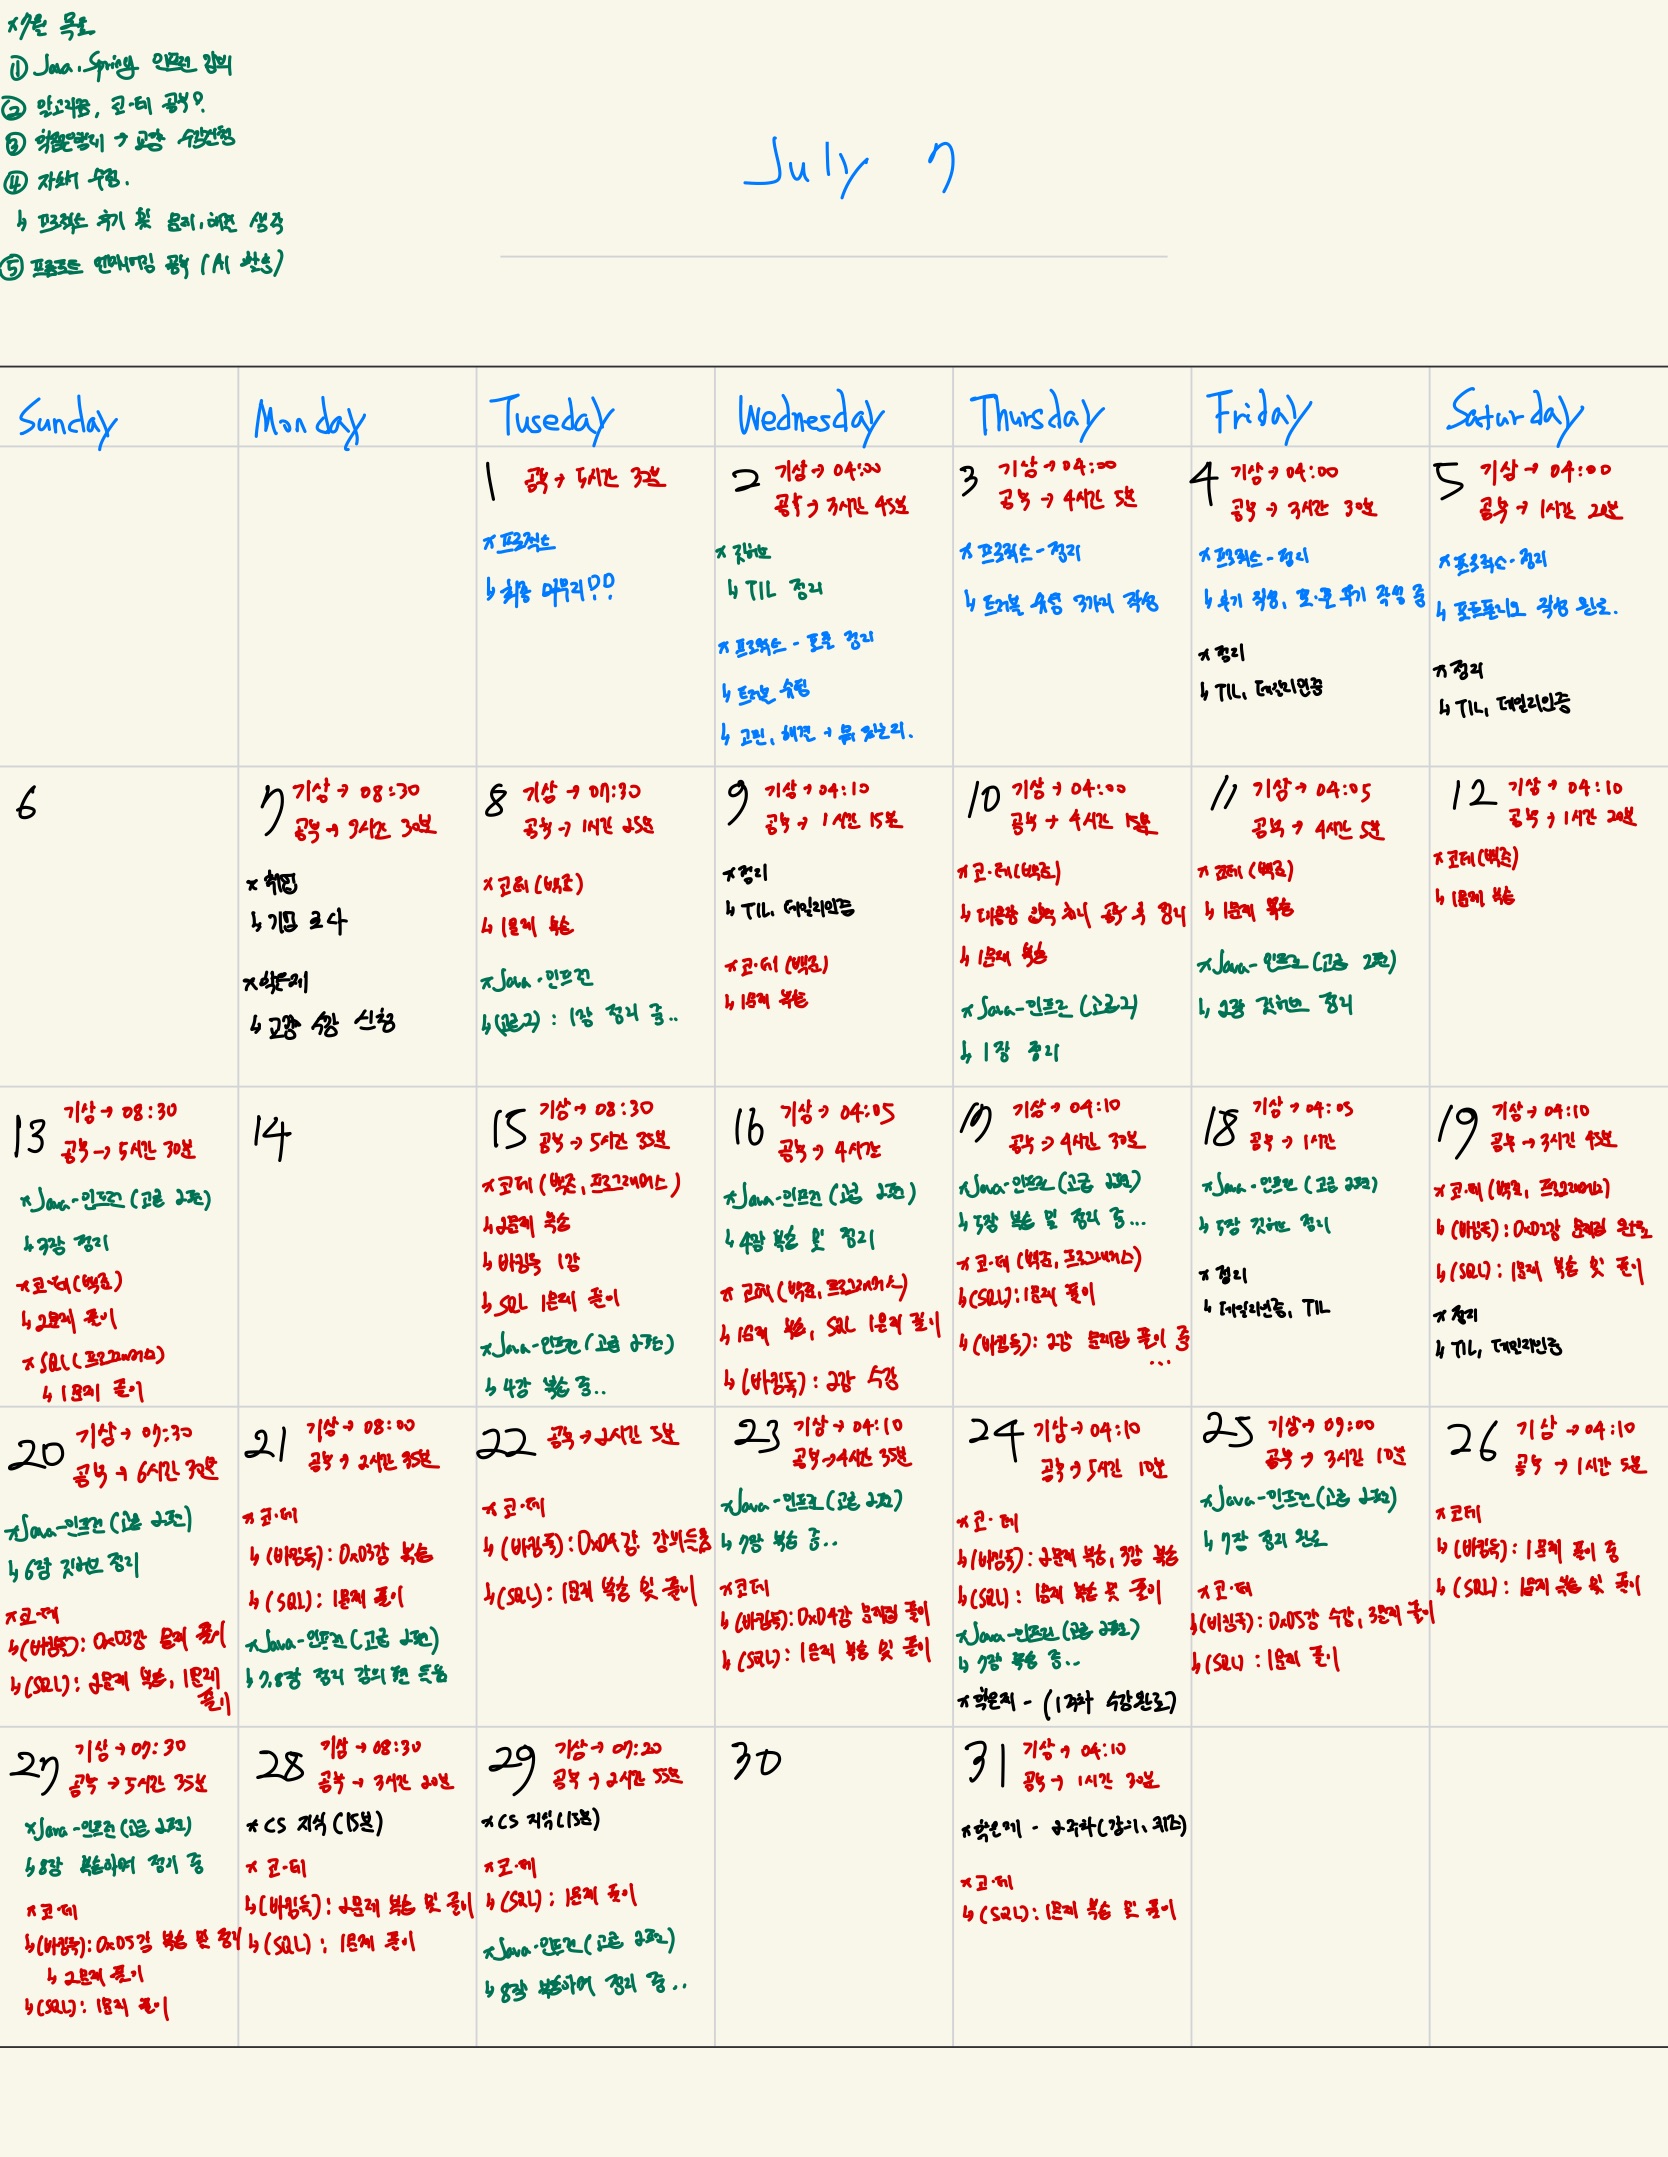 *7월 목표
① Java, Spring 인프런 강의
② 알고리즘, 코·테 공부?
③ 학은제 → 교양 수강신청
④ 자소서 수정.
↳ 프로젝트 후기 및 문제, 해결 생각
⑤ 프롬프트 엔지니어링 공부 (AI 활용)
July 7
Sunday Monday Tuseday Wednesday Thursday Friday Saturday
1 공부 → 5시간 32분
*프로젝트
↳ 최종 마무리??
2 기상 → 04:00
공부 → 3시간 45분
*깃허브
↳ TIL 정리
*프로젝트 - 포폴 정리
↳ 트러블 슈팅
↳ 고민, 해결 →
3 기상 → 04:00
공부 → 4시간 5분
*프로젝트 - 정리
↳ 트러블 슈팅 3가지 작성
4 기상 → 04:00
공부 → 3시간 30분
*프로젝트 - 정리
↳ 후기 작성, 포·폴 후기 작성 중
*정리
↳ TIL, 데일리인증
5 기상 → 04:00
공부 → 1시간 20분
*프로젝트 - 정리
↳ 포트폴리오 작성 완료.
*정리
↳ TIL, 데일리인증
6
7 기상 → 08:30
공부 → 7시간 30분
*취업
↳ 기업 조사
*학은제
↳ 교양 수강 신청
8 기상 → 07:30
공부 → 1시간 25분
*코테 (백준)
↳ 1문제 복습
*Java - 인프런
↳ (고급2) : 1강 정리 중..
9 기상 → 04:10
공부 → 1시간 15분
*정리
↳ TIL, 데일리인증
*코·테 (백준)
↳ 1문제 복습
10 기상 → 04:00
공부 → 4시간 15분
*코·테 (백준)
↳ 대용량 입력 처리 공부 후 정리
↳ 1문제 복습
*Java - 인프런 (고급2)
↳ 1장 정리
11 기상 → 04:05
공부 → 4시간 5분
*코테 (백준)
↳ 1문제 복습
*Java - 인프런 (고급 2편)
↳ 2강 깃허브 정리
12 기상 → 04:10
공부 → 1시간 20분
*코테 (백준)
↳ 1문제 복습
13 기상 → 08:30
공부 → 5시간 30분
*Java - 인프런 (고급 2편)
↳ 3강 정리
*코·테 (백준)
↳ 2문제 풀이
*SQL (프로그래머스)
↳ 1문제 풀이
14
15 기상 → 08:30
공부 → 5시간 35분
*코테 (백준, 프로그래머스)
↳ 2문제 복습
↳ 바킹독 1강
↳ SQL 1문제 풀이
*Java - 인프런 (고급 2편)
↳ 4강 복습 중..
16 기상 → 04:05
공부 → 4시간
*Java - 인프런 (고급 2편)
↳ 4강 복습 및 정리
*코테 (백준, 프로그래머스)
↳ 1문제 복습, SQL 1문제 풀이
↳ (바킹독) : 2강 수강
17 기상 → 04:10
공부 → 4시간 30분
*Java - 인프런 (고급 2편)
↳ 5장 복습 및 정리 중...
*코·테 (백준, 프로그래머스)
↳ (SQL) : 1문제 풀이
↳ (바킹독) : 2강 문제집 풀이 중
...
18 기상 → 04:05
공부 → 1시간
*Java - 인프런 (고급 2편)
↳ 5장 깃허브 정리
*정리
↳ 데일리인증, TIL
19 기상 → 04:10
공부 → 3시간 45분
*코·테 (백준, 프로그래머스)
↳ (바킹독) : 0x02강 문제집 완료
↳ (SQL) : 1문제 복습 및 풀이
*정리
↳ TIL, 데일리인증
20 기상 → 07:30
공부 → 6시간 30분
*Java - 인프런 (고급 2편)
↳ 6장 깃허브 정리
*코·테
↳ (바킹독) : 0x03강 문제 풀이
↳ (SQL) : 2문제 복습, 1문제
풀이
21 기상 → 08:00
공부 → 2시간 35분
*코·테
↳ (바킹독) : 0x03강 복습
↳ (SQL) : 1문제 풀이
*Java - 인프런 (고급 2편)
↳ 7,8강 정리 강의 1편 들음
22 공부 → 2시간 5분
*코·테
↳ (바킹독) : 0x04강 강의들음
↳ (SQL) : 1문제 복습 및 풀이
23 기상 → 04:10
공부 → 4시간 35분
*Java - 인프런 (고급 2편)
↳ 7장 복습 중..
*코테
↳ (바킹독) : 0x04강 문제집 풀이
↳ (SQL) : 1문제 복습 및 풀이
24 기상 → 04:10
공부 → 5시간 10분
*코·테
↳ (바킹독) : 2문제 복습, 3강 복습
↳ (SQL) : 1문제 복습 및 풀이
*Java - 인프런 (고급 2편)
↳ 7강 복습 중..
*학은제 - (1주차 수강완료)
25 기상 → 09:00
공부 → 3시간 10분
*Java - 인프런 (고급 2편)
↳ 7장 정리 완료
*코·테
↳ (바킹독) : 0x05강 수강, 3문제 풀이
↳ (SQL) : 1문제 풀이
26 기상 → 04:10
공부 → 1시간 5분
*코테
↳ (바킹독) : 1문제 풀이 중
↳ (SQL) : 1문제 복습 및 풀이
27 기상 → 07:30
공부 → 5시간 35분
*Java - 인프런 (고급 2편)
↳ 8장 복습하며 정리 중
*코·테
↳ (바킹독) : 0x05강 복습 및 정리
↳ 2문제 풀이
↳ (SQL) : 1문제 풀이
28 기상 → 08:30
공부 → 3시간 20분
*CS 지식 (15분)
*코·테
↳ (바킹독) : 2문제 복습 및 풀이
↳ (SQL) : 1문제 풀이
29 기상 → 07:20
공부 → 2시간 55분
*CS 지식 (15분)
*코·테
↳ (SQL) : 1문제 풀이
*Java - 인프런 (고급 2편)
↳ 8장 복습하며 정리 중..
30
31 기상 → 04:10
공부 → 1시간 30분
*학은제 - 2주차 (강의, 퀴즈)
*코·테
↳ (SQL) : 1문제 복습 및 풀이